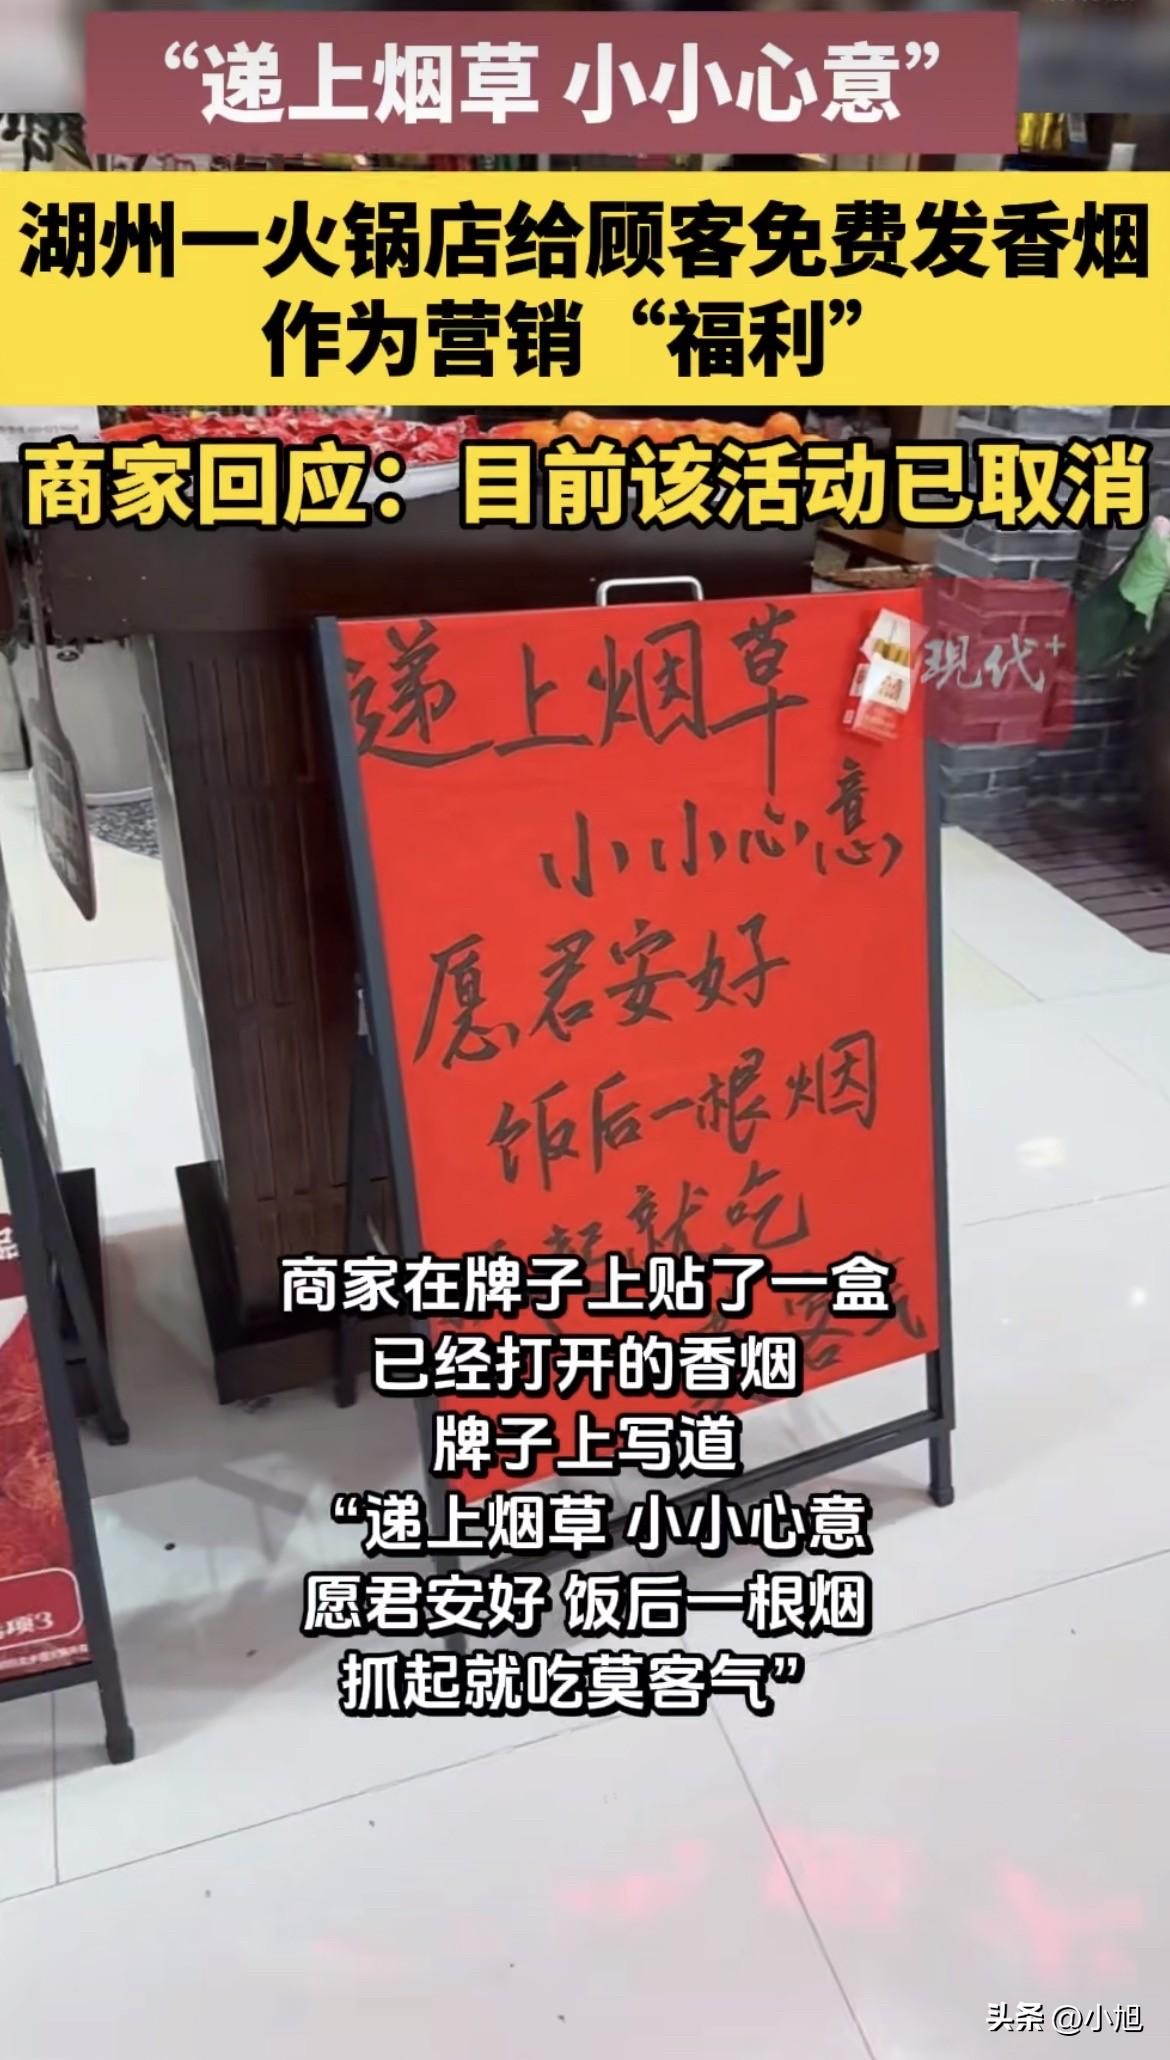 “递上烟草 小小心意”
湖州一火锅店给顾客免费发香烟
作为营销“福利”
商家回应：目前该活动已取消
现代+
递上烟草
小小心意
愿君安好
饭后一根烟
起就吃
客气
商家在牌子上贴了一盒
已经打开的香烟
牌子上写道
“递上烟草 小小心意
愿君安好 饭后一根烟
抓起就吃莫客气”
头条 @小旭